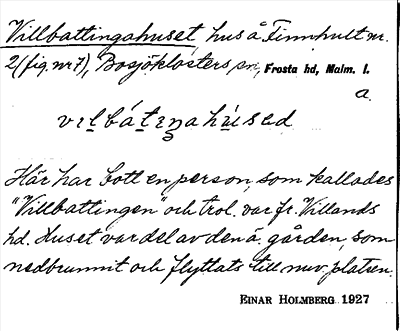 Villbattingahuset, hus å Finnhult nr.
2 (fig. nr 7), Bosjöklosters sn, Frosta hd, Malm. l.
a.
vɪlbátɪŋahúsəd
Här har bott en person, som kallades
"Villbattingen" och trol. var fr. Villands
hd. Huset var del av den ä. gården, som
nedbrunnit och flyttats till nuv. platsen.
EINAR HOLMBERG 1927